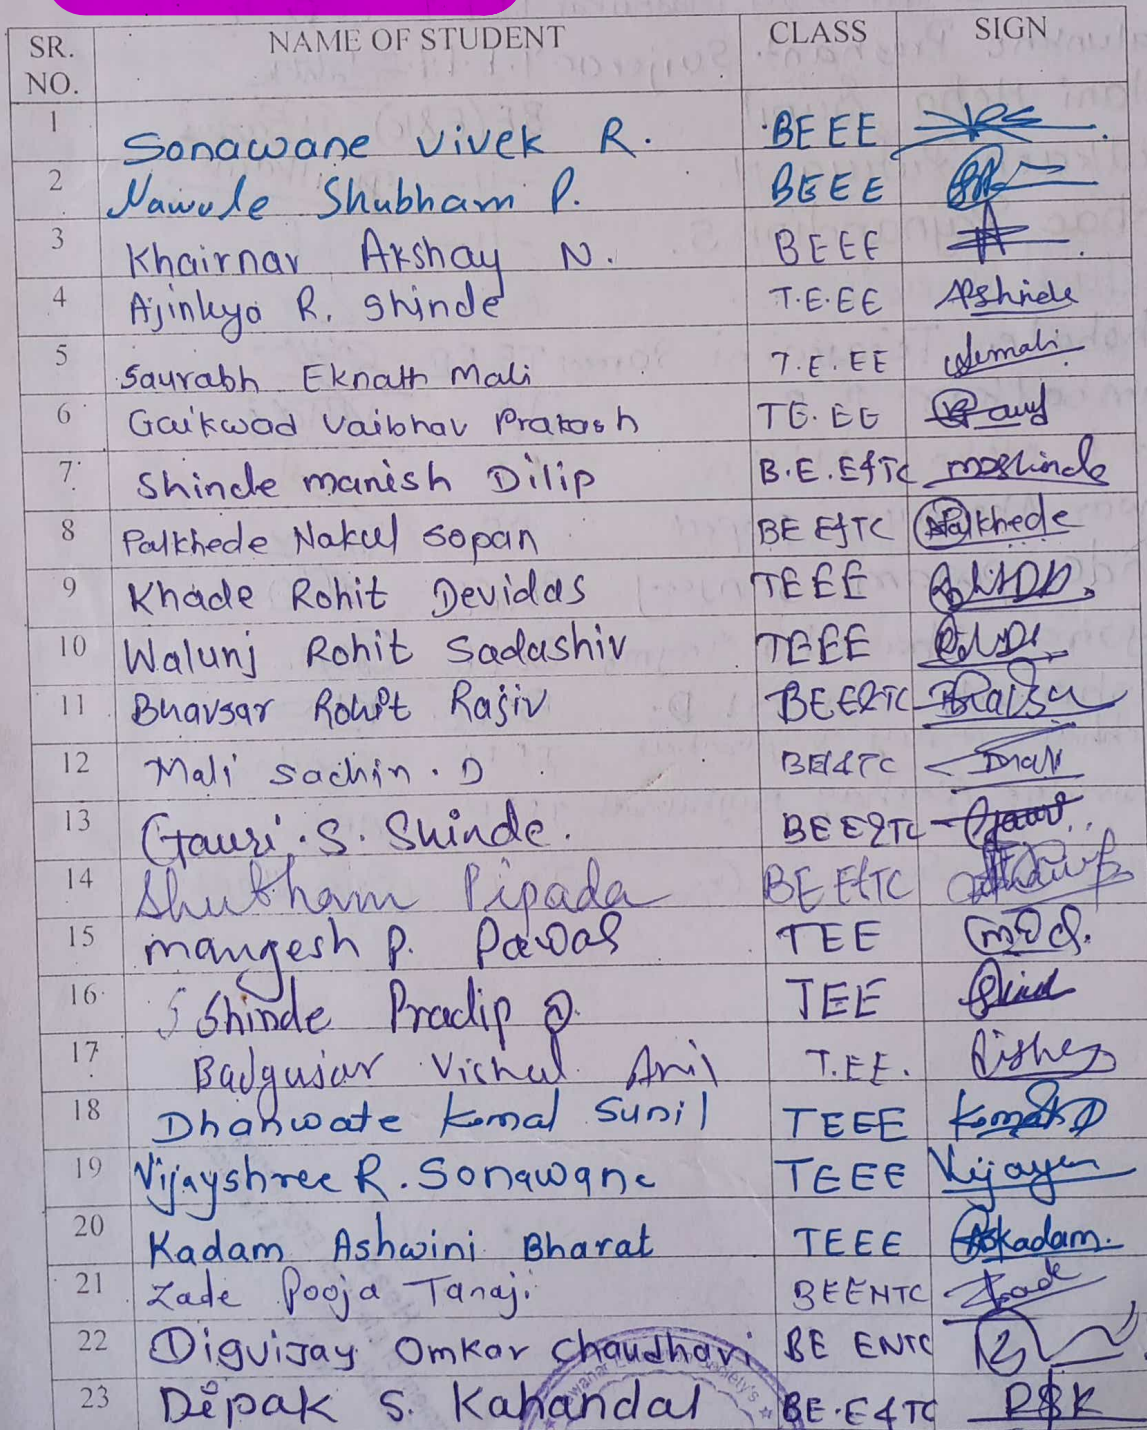 SR. NO. NAME OF STUDENT CLASS SIGN
1 Sonawane Vivek R. BEEE
2 Nawole Shubham P. BEEE
3 Khairnar Akshay N. BEEE
4 Ajinkya R. Shinde T.E.EE ARShinde
5 Saurabh Eknath Mali T.E.EE Semali
6 Gaikwad Vaibhav Prakash TE.EE
7 Shinde manish Dilip B.E.E&TC mdshinde
8 Palkhede Nakul Sopan BE E&TC NPalkhede
9 Khade Rohit Devidas TEEE
10 Walunj Rohit Sadashiv TEEE
11 Bhavsar Rohit Rajiv BEE&TC
12 Mali Sachin. D BE&TC
13 Gauri. S. Shinde. BE E&TC
14 Shubham Pipada BE E&TC
15 mangesh P. Pawar TEE
16 Shinde Pradip D. TEE
17 Badgujar Vishal Anil T.EE.
18 Dhanwate Komal Sunil TEEE
19 Vijayshree R. Sonawane TEEE
20 Kadam Ashwini Bharat TEEE Askadam.
21 Zade Pooja Tanaji BEENTC Zade
22 Digvijay Omkar Chaudhari BE ENTC
23 Dipak S. Kahandal BE.E&TC DSK